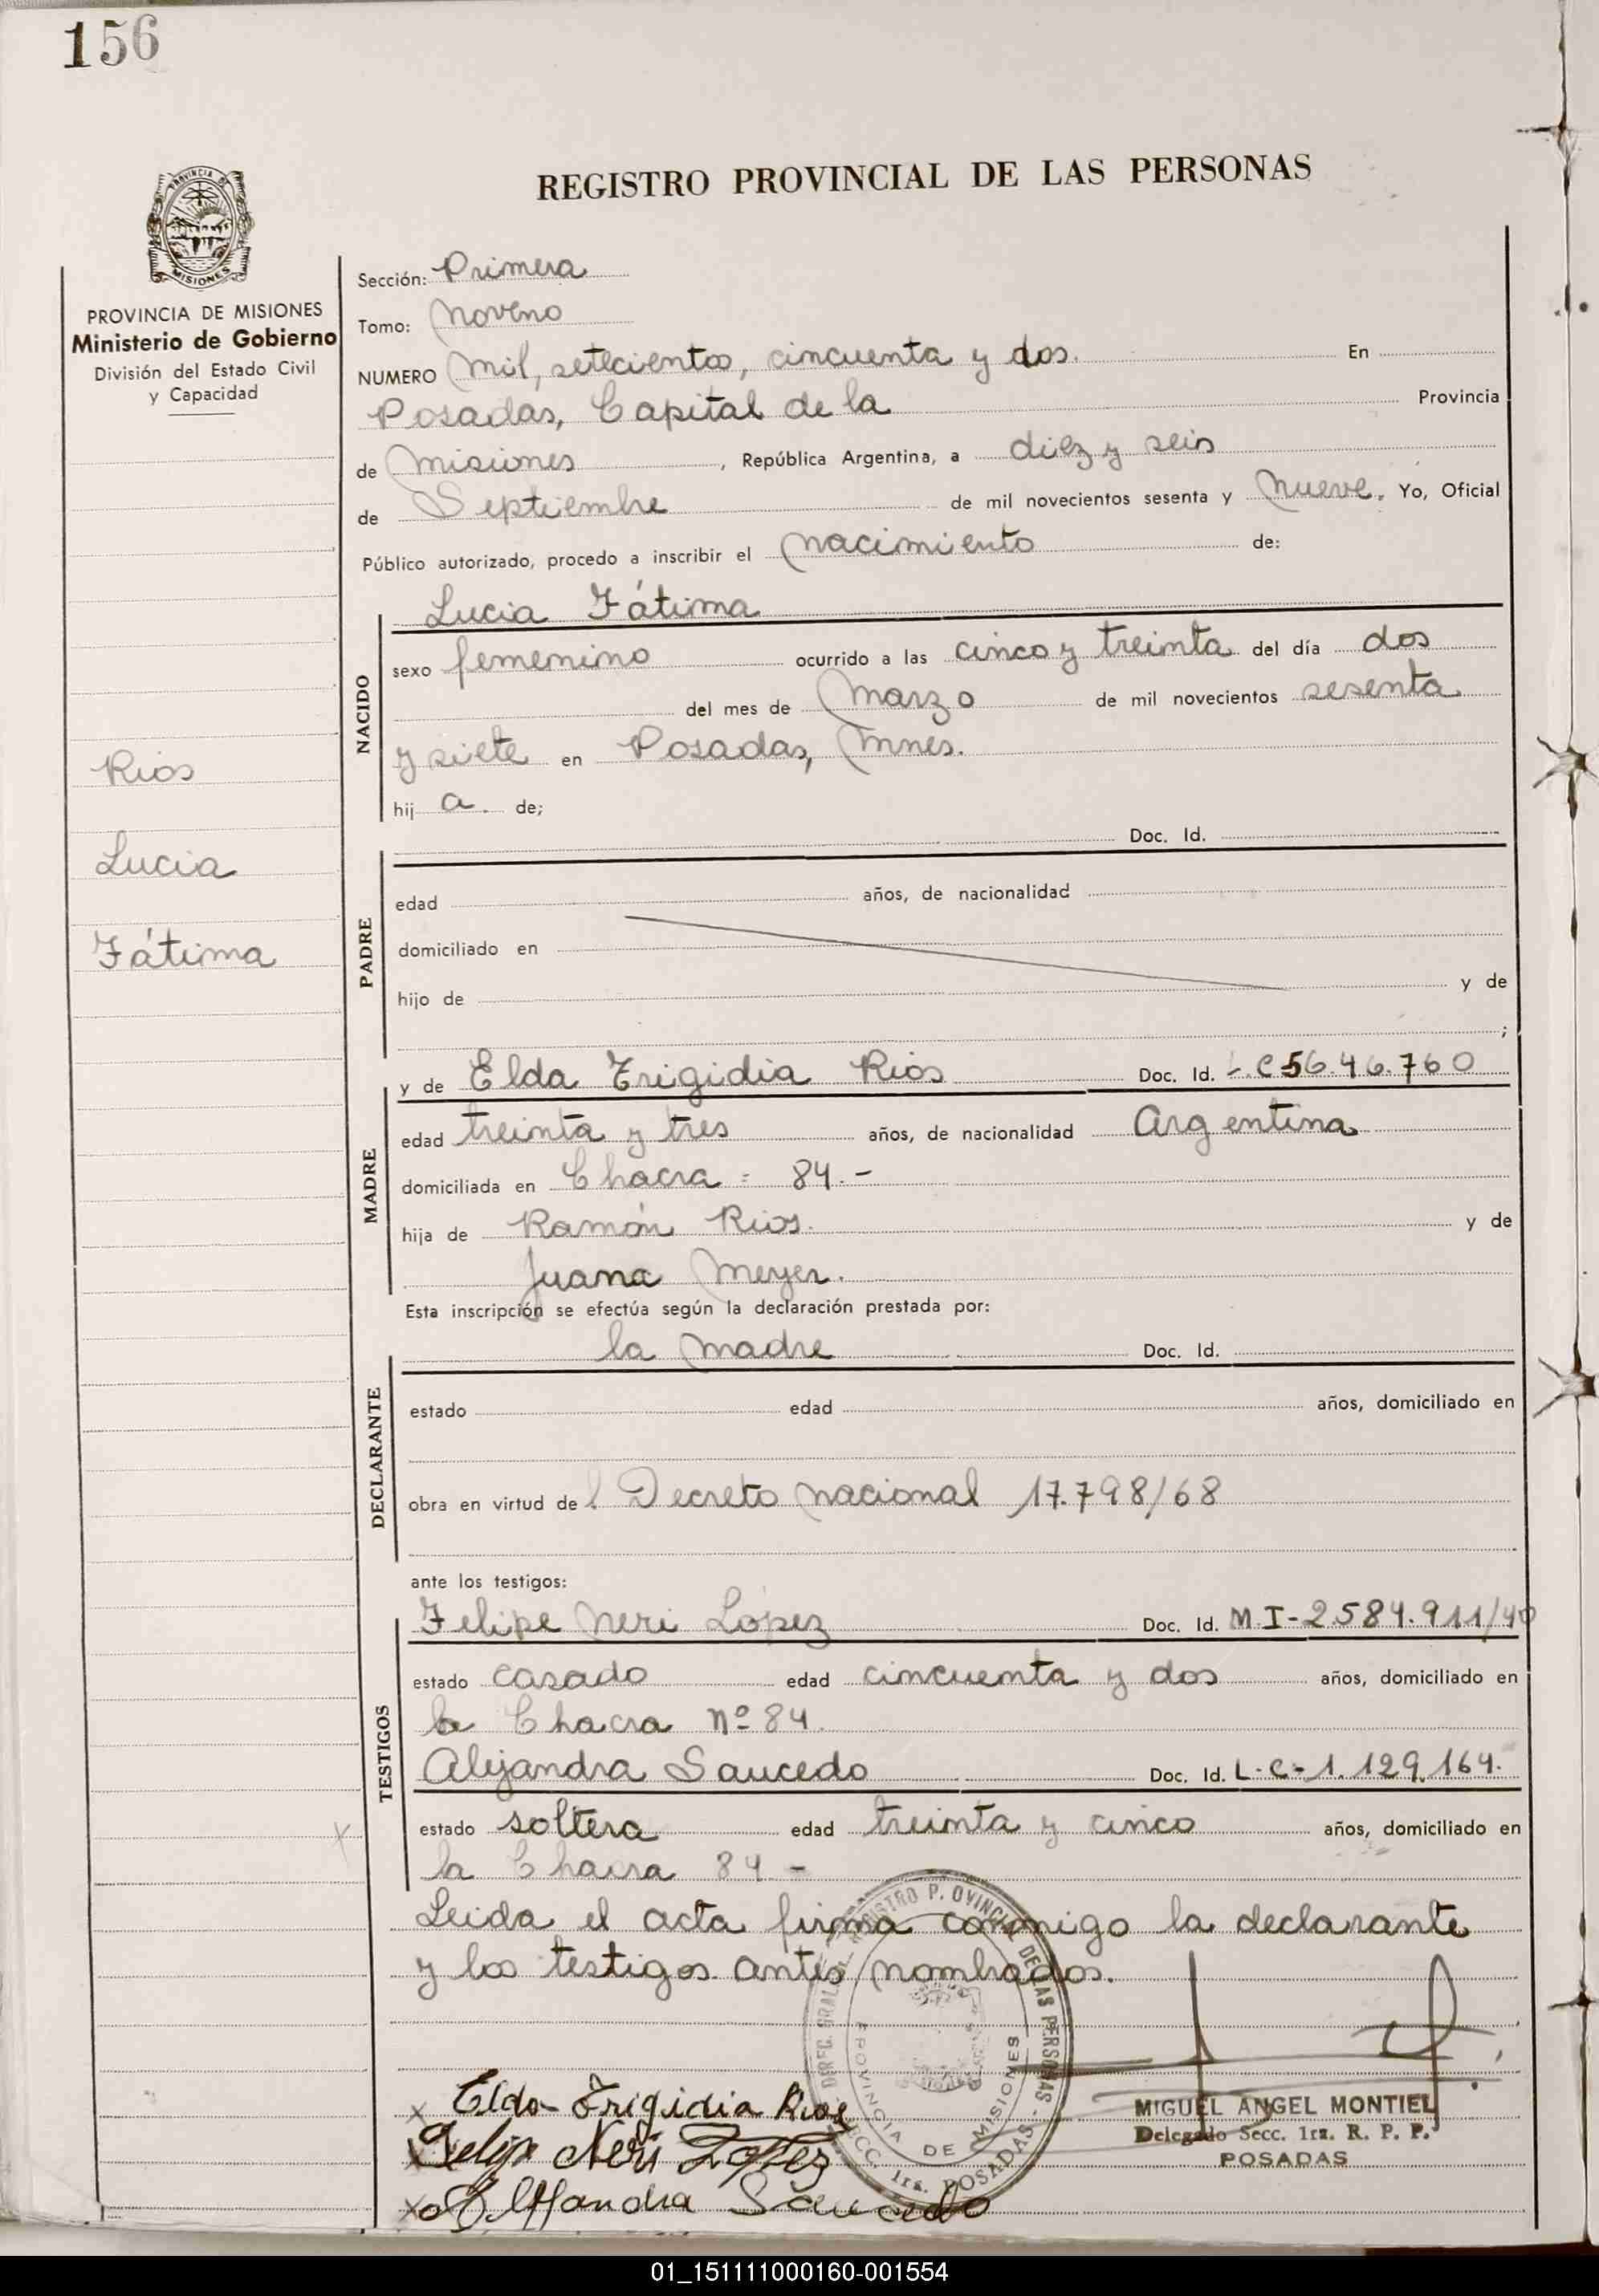 156
REGISTRO PROVINCIAL DE LAS PERSONAS
PROVINCIA DE MISIONES
PROVINCIA DE MISIONES
Ministerio de Gobierno
División del Estado Civil
y Capacidad
Rios
Lucia
Fátima
Sección: Primera
Tomo: Noveno
NUMERO Mil, setecientos, cincuenta y dos. En
Posadas, Capital de la Provincia
de Misiones, República Argentina, a diez y seis
de Septiembre de mil novecientos sesenta y nueve. Yo, Oficial
Público autorizado, procedo a inscribir el nacimiento de:
Lucia Fátima
NACIDO
sexo femenino ocurrido a las cinco y treinta del día dos
del mes de Marzo de mil novecientos sesenta
y siete en Posadas, Mnes.
hij a. de;
Doc. Id.
PADRE
edad años, de nacionalidad
domiciliado en
hijo de y de
;
y de Elda Frigidia Rios Doc. Id. L.C 5646.760
MADRE
edad treinta y tres años, de nacionalidad Argentina
domiciliada en Chacra = 84.-
hija de Ramón Rios. y de
Juana Meyer.
Esta inscripción se efectúa según la declaración prestada por:
la madre Doc. Id.
DECLARANTE
estado edad años, domiciliado en
obra en virtud del Decreto nacional 17.798/68
ante los testigos:
Felipe Neri López Doc. Id. M.I-2.584.911/40
TESTIGOS
estado casado edad cincuenta y dos años, domiciliado en
la Chacra Nº 84.
Alejandra Saucedo Doc. Id. L.C-1.129.164.
estado soltera edad treinta y cinco años, domiciliado en
la Chacra 84 -
Leida el acta firma conmigo la declarante
y los testigos antes nombrados.
DIREC. GRAL. REGISTRO PROVINCIAL DE LAS PERSONAS - SECC. 1ra. POSADAS
PROVINCIA DE MISIONES
x Elda Frigidia Rios
x Felipe Neri Lopez
x Alejandra Saucedo
MIGUEL ANGEL MONTIEL
Delegado Secc. 1ra. R. P. P.
POSADAS
01_151111000160-001554